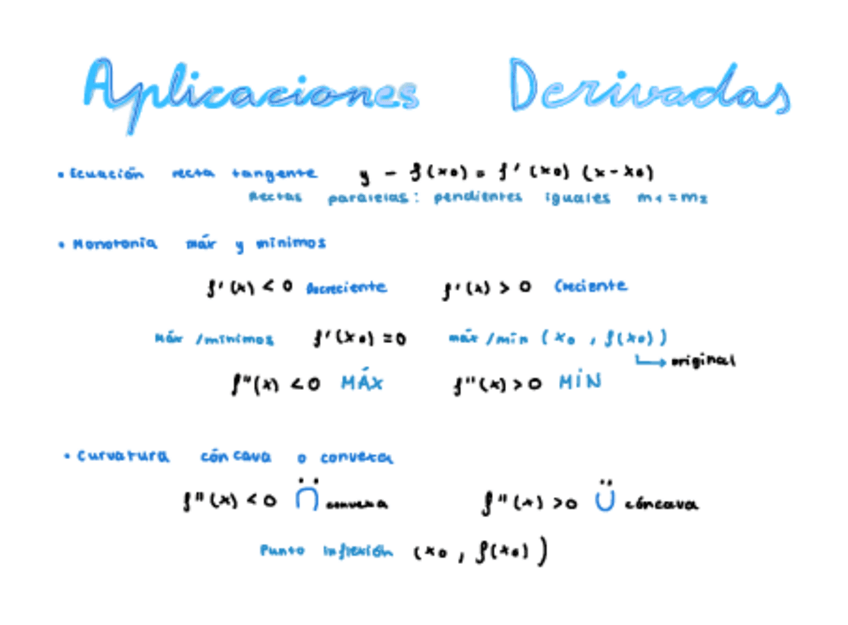 Aplicaciones Derivadas
• Ecuación recta tangente y - f(x0) = f'(x0) (x-x0)
Rectas paralelas: pendientes iguales m1=m2
• Monotonía máx y mínimos
f'(x) < 0 Decreciente f'(x) > 0 Creciente
Máx /mínimos f'(x0) = 0 máx /mín (x0 , f(x0))
→ original
f''(x) < 0 MÁX f''(x) > 0 MÍN
• Curvatura cóncava o convexa
f''(x) < 0 ∩ convexa f''(x) > 0 ∪ cóncava
Punto inflexión (x0 , f(x0))